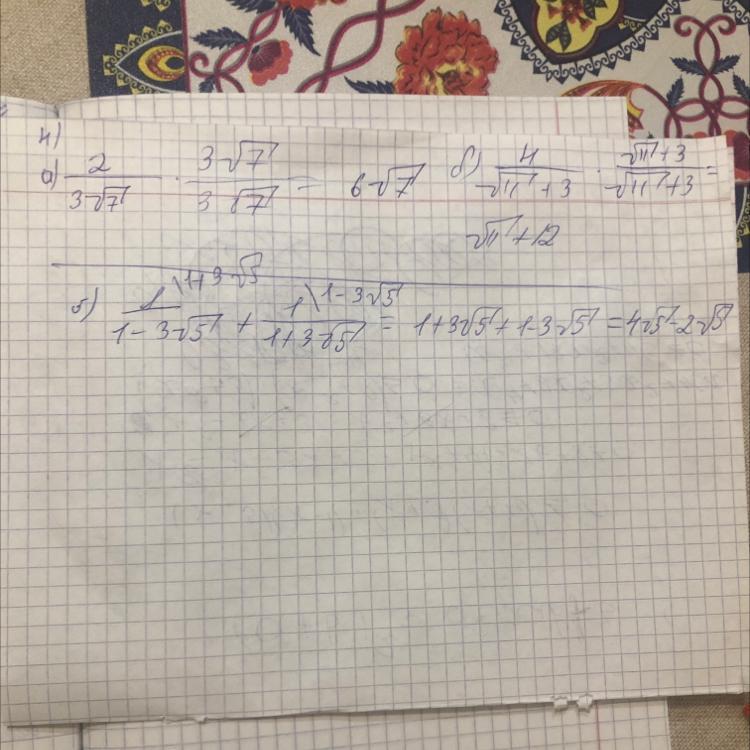 4)
а) 2/(3√7) · (3√7)/(3√7) = 6√7 б) 4/(√11+3) · (√11+3)/(√11+3) =
√11+12
5) 1\1+3√5/(1-3√5) + 1\1-3√5/(1+3√5) = 1+3√5+1-3√5 = 4√5-2√5